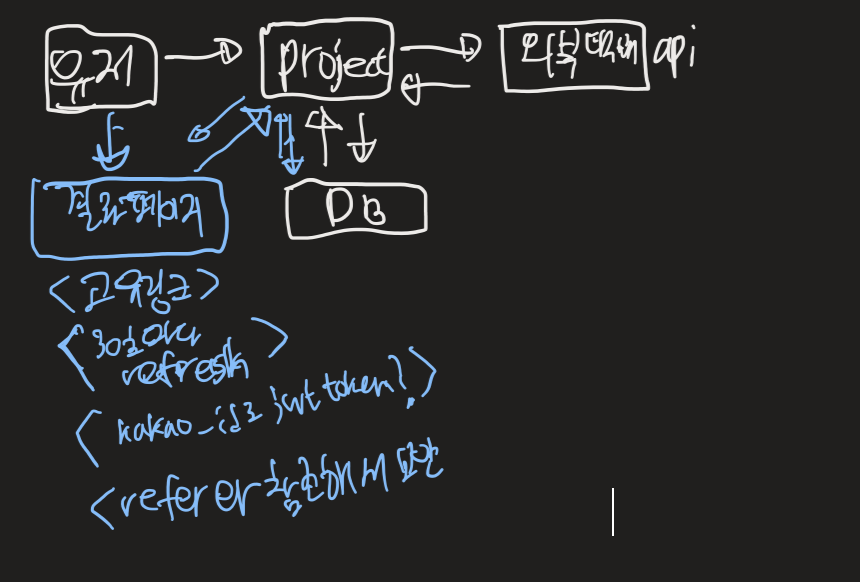 유저
project
api
결과페이지
DB
<고유링크>
<30초마다
refresh>
<kakao_id로 jwt token?>
<referer 참조해서 판단